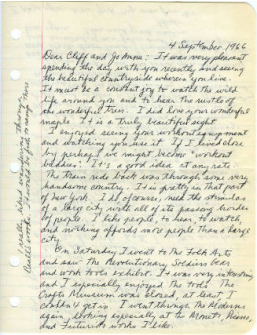 4 September, 1966
Dear Cliff and Jo Anne: It was very pleasant
spending the day with you recently and seeing
the beautiful countryside wherein you live.
It must be a constant joy to watch the wild
life around you and to hear the rustle of
the wonderful trees. I did love your wonderful
maple. It is a truly beautiful sight.
I enjoyed seeing your workout equipment
and watching you use it. If I lived close
by perhaps I've might become "workout
buddies". It's a good idea at any rate.
The train ride back was through some very
handsome country. It is pretty in that part
of New York. I do, of course, need the stimulus
of a large city with all its passing shoals
of people. I like people, to hear, to watch,
and nothing affords more people than a large
city.
On Saturday I went to the Folk Arts
and saw the Revolutionary Soldiers Gear
and work tools exhibit. It was very interesting
and I especially enjoyed the tools. The
Crafts Museum was closed, at least I
couldn't get in. I went through the Moderns
again, looking especially at the Monets, Picasso,
and Futurists works I like.